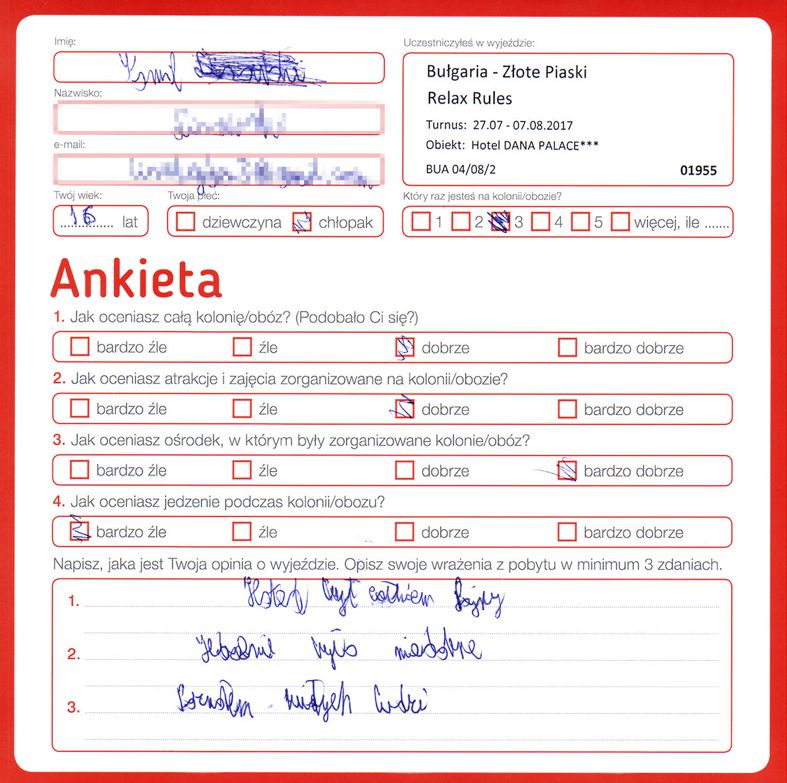 Imię:
Kamil
Nazwisko:
e-mail:
Twój wiek:
16 lat
Twoja płeć:
dziewczyna chłopak
Uczestniczyłeś w wyjeździe:
Bułgaria - Złote Piaski
Relax Rules
Turnus: 27.07 - 07.08.2017
Obiekt: Hotel DANA PALACE***
BUA 04/08/2 01955
Który raz jesteś na kolonii/obozie?
1 2 3 4 5 więcej, ile .......
Ankieta
1. Jak oceniasz całą kolonię/obóz? (Podobało Ci się?)
bardzo źle źle dobrze bardzo dobrze
2. Jak oceniasz atrakcje i zajęcia zorganizowane na kolonii/obozie?
bardzo źle źle dobrze bardzo dobrze
3. Jak oceniasz ośrodek, w którym były zorganizowane kolonie/obóz?
bardzo źle źle dobrze bardzo dobrze
4. Jak oceniasz jedzenie podczas kolonii/obozu?
bardzo źle źle dobrze bardzo dobrze
Napisz, jaka jest Twoja opinia o wyjeździe. Opisz swoje wrażenia z pobytu w minimum 3 zdaniach.
1. Hotel był całkiem fajny
2. było niedobre
3. miłych ludzi